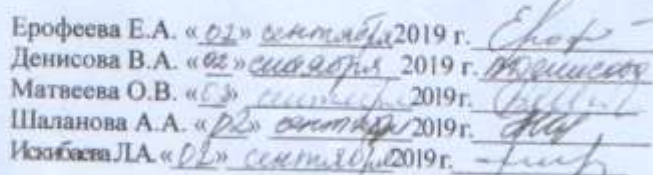 Ерофеева Е.А. «02» сентября 2019 г.
Денисова В.А. «02» сентября 2019 г.
Матвеева О.В. «03» сентября 2019 г.
Шаланова А.А. «02» сентября 2019 г.
Искибаева Л.А. «02» сентября 2019 г.